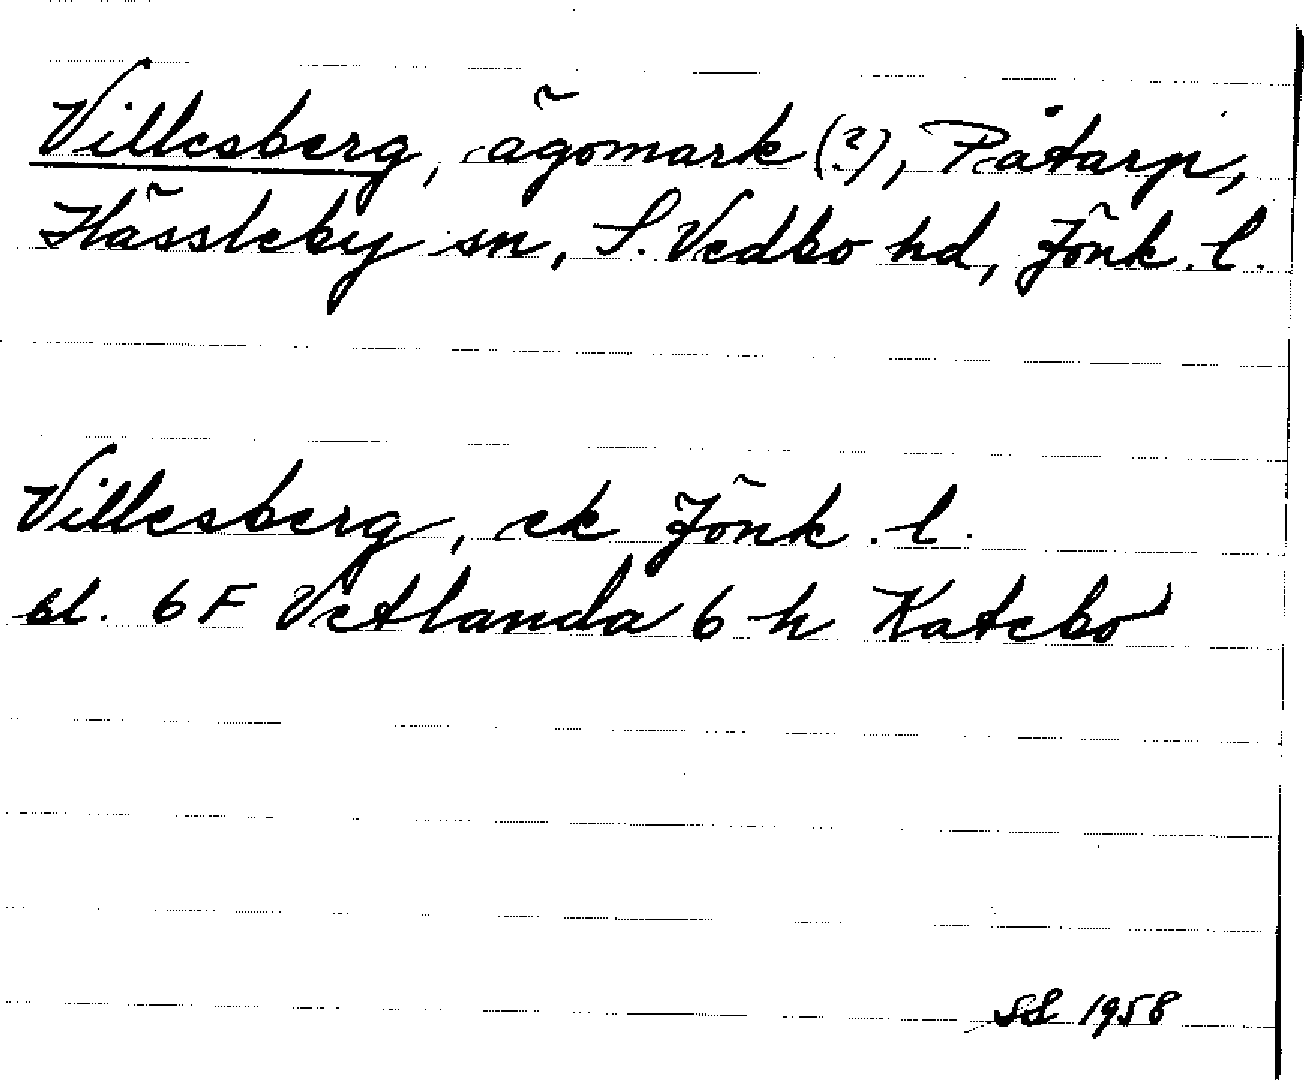 Villesberg, ägomark (?), Påtarp,
Hässleby sn, S. Vedbo hd, Jönk. l.
Villesberg, ek Jönk. l.
bl. 6 F Vetlanda 6 h Katebo
SL 1958